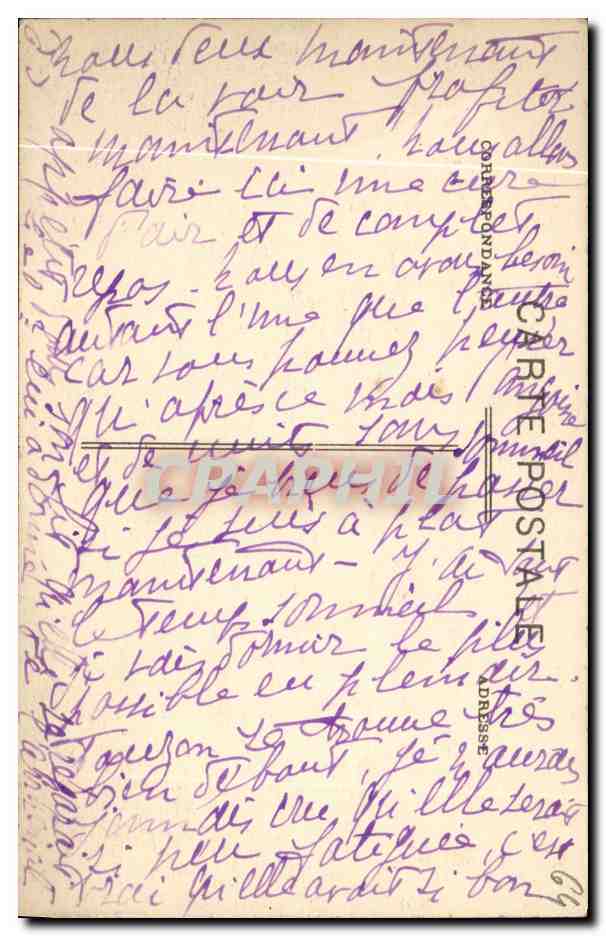 nous deux maintenant
de la voir profiter
maintenant. nous allons
faire ici une cure
d'air et de complet
repos. nous en avons besoin
autant l'une que l'autre
car vous pouvez penser
qu'après ce mois d'angoisse
et de nuits sans sommeil
que je viens de passer
si je suis à plat
maintenant - j'ai tout
le temps sommeil et
je vais dormir le plus
possible en plein air.
se trouve très
bien debout, je n'aurais
jamais cru qu'elle serait
si peu fatiguée, c'est
vrai qu'elle avait si bon
CORRESPONDANCE
CARTE POSTALE
ADRESSE
CPAPHIL
64